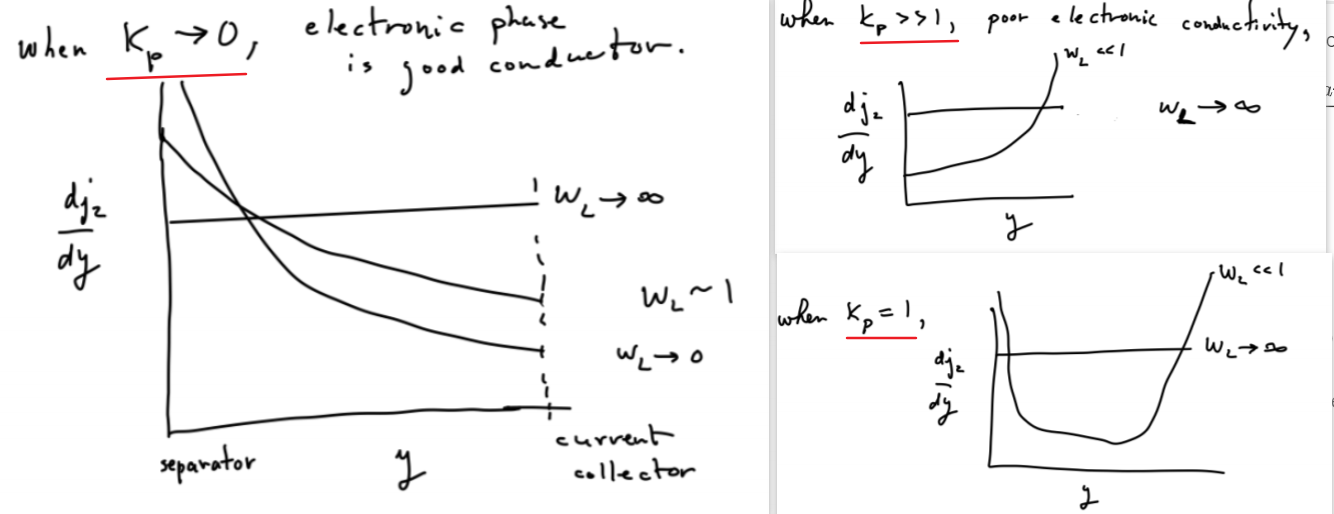 when Kp → 0, electronic phase
is good conductor.
dj₂
dy
W_L → ∞
W_L ~ 1
W_L → 0
separator
y
current
collector
when Kp >> 1, poor electronic conductivity,
W_L << 1
dj₂
dy
W_L → ∞
y
when Kp = 1,
W_L << 1
W_L → ∞
dj₂
dy
y